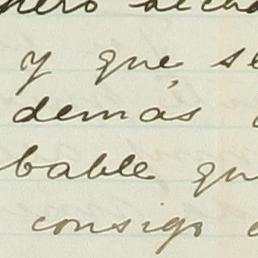 y que se
demás
bable qu
consigo